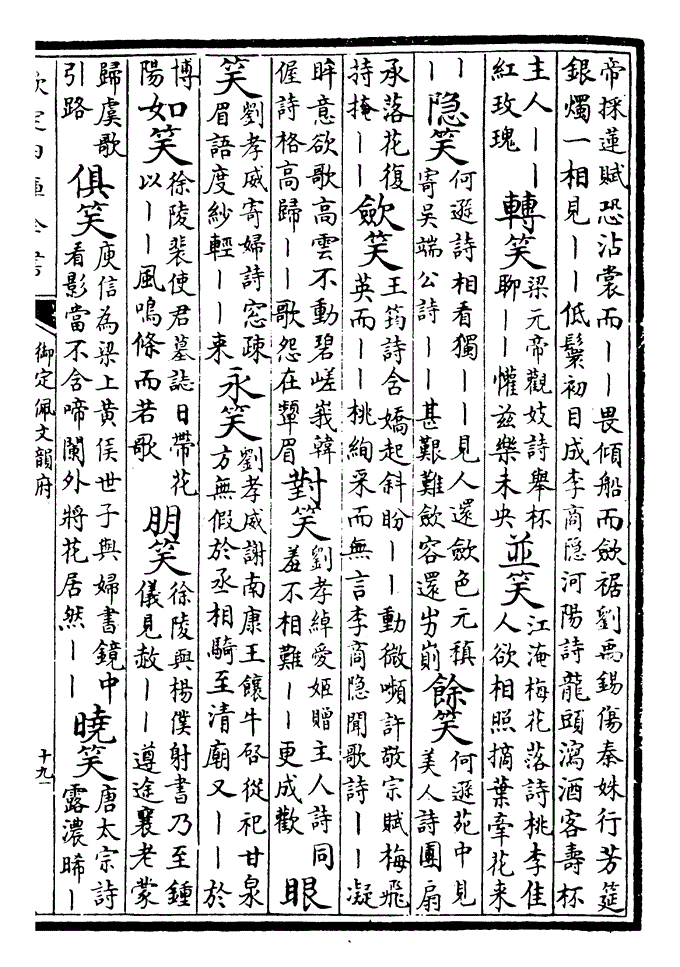 帝採蓮賦恐沾裳而丨丨畏傾船而斂裾劉禹錫傷秦姝行芳筵
銀燭一相見丨丨低鬟初目成李商隐河陽詩龍頭瀉酒客壽杯
主人丨丨
紅玫瑰
轉笑
梁元帝觀妓詩舉杯
聊丨丨懽兹樂未央
並笑
江淹梅花落詩桃李佳
人欲相照摘葉牽花來
丨
丨
隐笑
何遜詩相看獨丨丨見人還斂色元稹
寄吳端公詩丨丨甚艱難斂容還屴崱
餘笑
何遜苑中見
美人詩團扇
承落花復
持掩丨丨
歛笑
王筠詩含嬌起斜盼丨丨動微嚬許敬宗賦梅飛
英而丨丨桃絢采而無言李商隐聞歌詩丨丨凝
眸意欲歌高雲不動碧嵯峩韓
偓詩格高歸丨丨歌怨在顰眉
對笑
劉孝綽愛姬贈主人詩同
羞不相難丨丨更成歡
眼
笑
劉孝威寄婦詩窓疎
眉語度紗輕丨丨來
永笑
劉孝威謝南康王饟牛啓從祀甘泉
方無假於丞相騎至清廟又丨丨於
博
陽
如笑
徐陵裴使君墓誌日帶花
以丨丨風鳴條而若歌
朋笑
徐陵與楊僕射書乃至鍾
儀見赦丨丨遵途襄老蒙
歸虞歌
引路
俱笑
庾信為梁上黄侯世子與婦書鏡中
看影當不含啼闌外將花居然丨丨
曉笑
唐太宗詩
露濃晞丨
欽定四庫全書
御定佩文韻府
十九